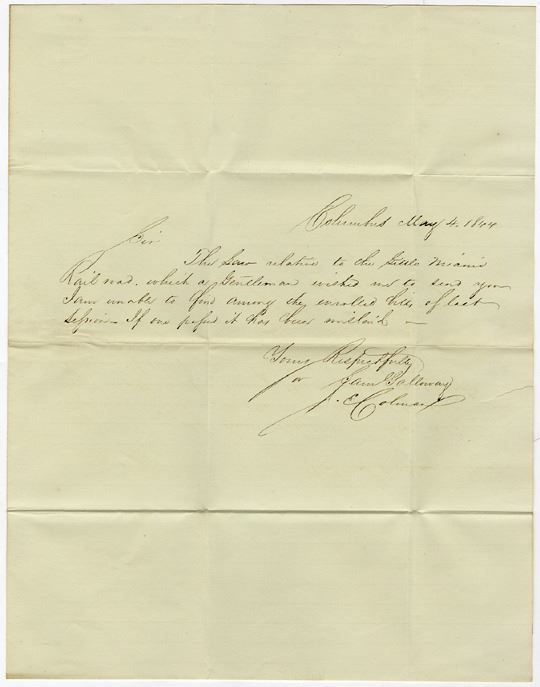 Columbus May 4. 1844
Sir
The Law relative to the Little Miami
Rail road. which a Gentleman wished me to send you
I am unable to find among the enrolled bills of last
session - If one passed it has been mislaid -
Yours Respectfully
for Saml Galloway
J. E Colman